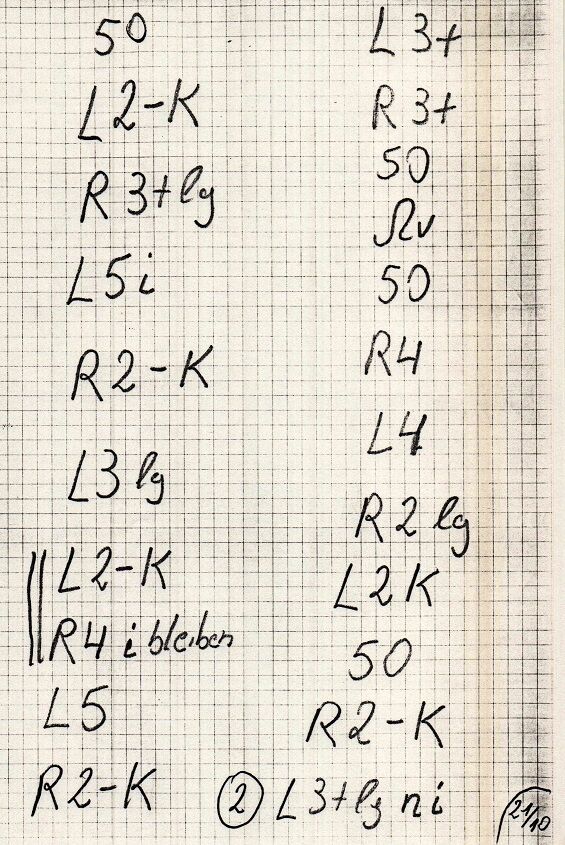 50
L2-K
R3+lg
L5i
R2-K
L3lg
L2-K
R4 i bleiben
L5
R2-K
L3+
R3+
50
Ωv
50
R4
L4
R2lg
L2K
50
R2-K
2 L3+lg ni
21/10